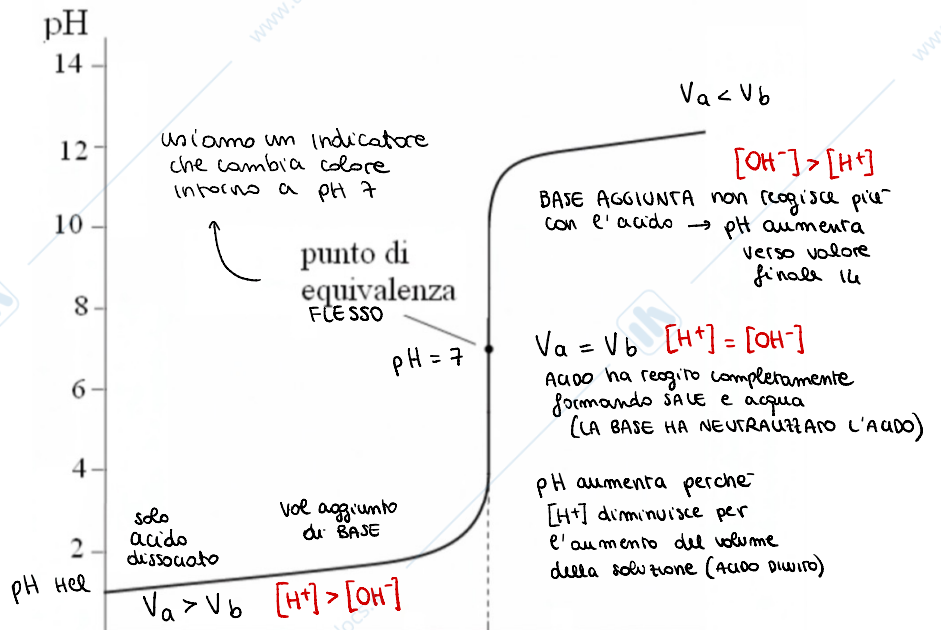 pH
14
12
10
8
6
4
2
usiamo un indicatore
che cambia colore
intorno a pH 7
punto di
equivalenza
FLESSO
pH = 7
Va < Vb
[OH⁻] > [H⁺]
BASE AGGIUNTA non reagisce più
con l'acido → pH aumenta
verso valore
finale 14
Va = Vb [H⁺] = [OH⁻]
ACIDO ha reagito completamente
formando SALE e acqua
(LA BASE HA NEUTRALIZZATO L'ACIDO)
pH aumenta perché
[H⁺] diminuisce per
l'aumento del volume
della soluzione (ACIDO DILUITO)
solo
acido
dissociato
vol aggiunto
di BASE
pH HCl
Va > Vb [H⁺] > [OH⁻]